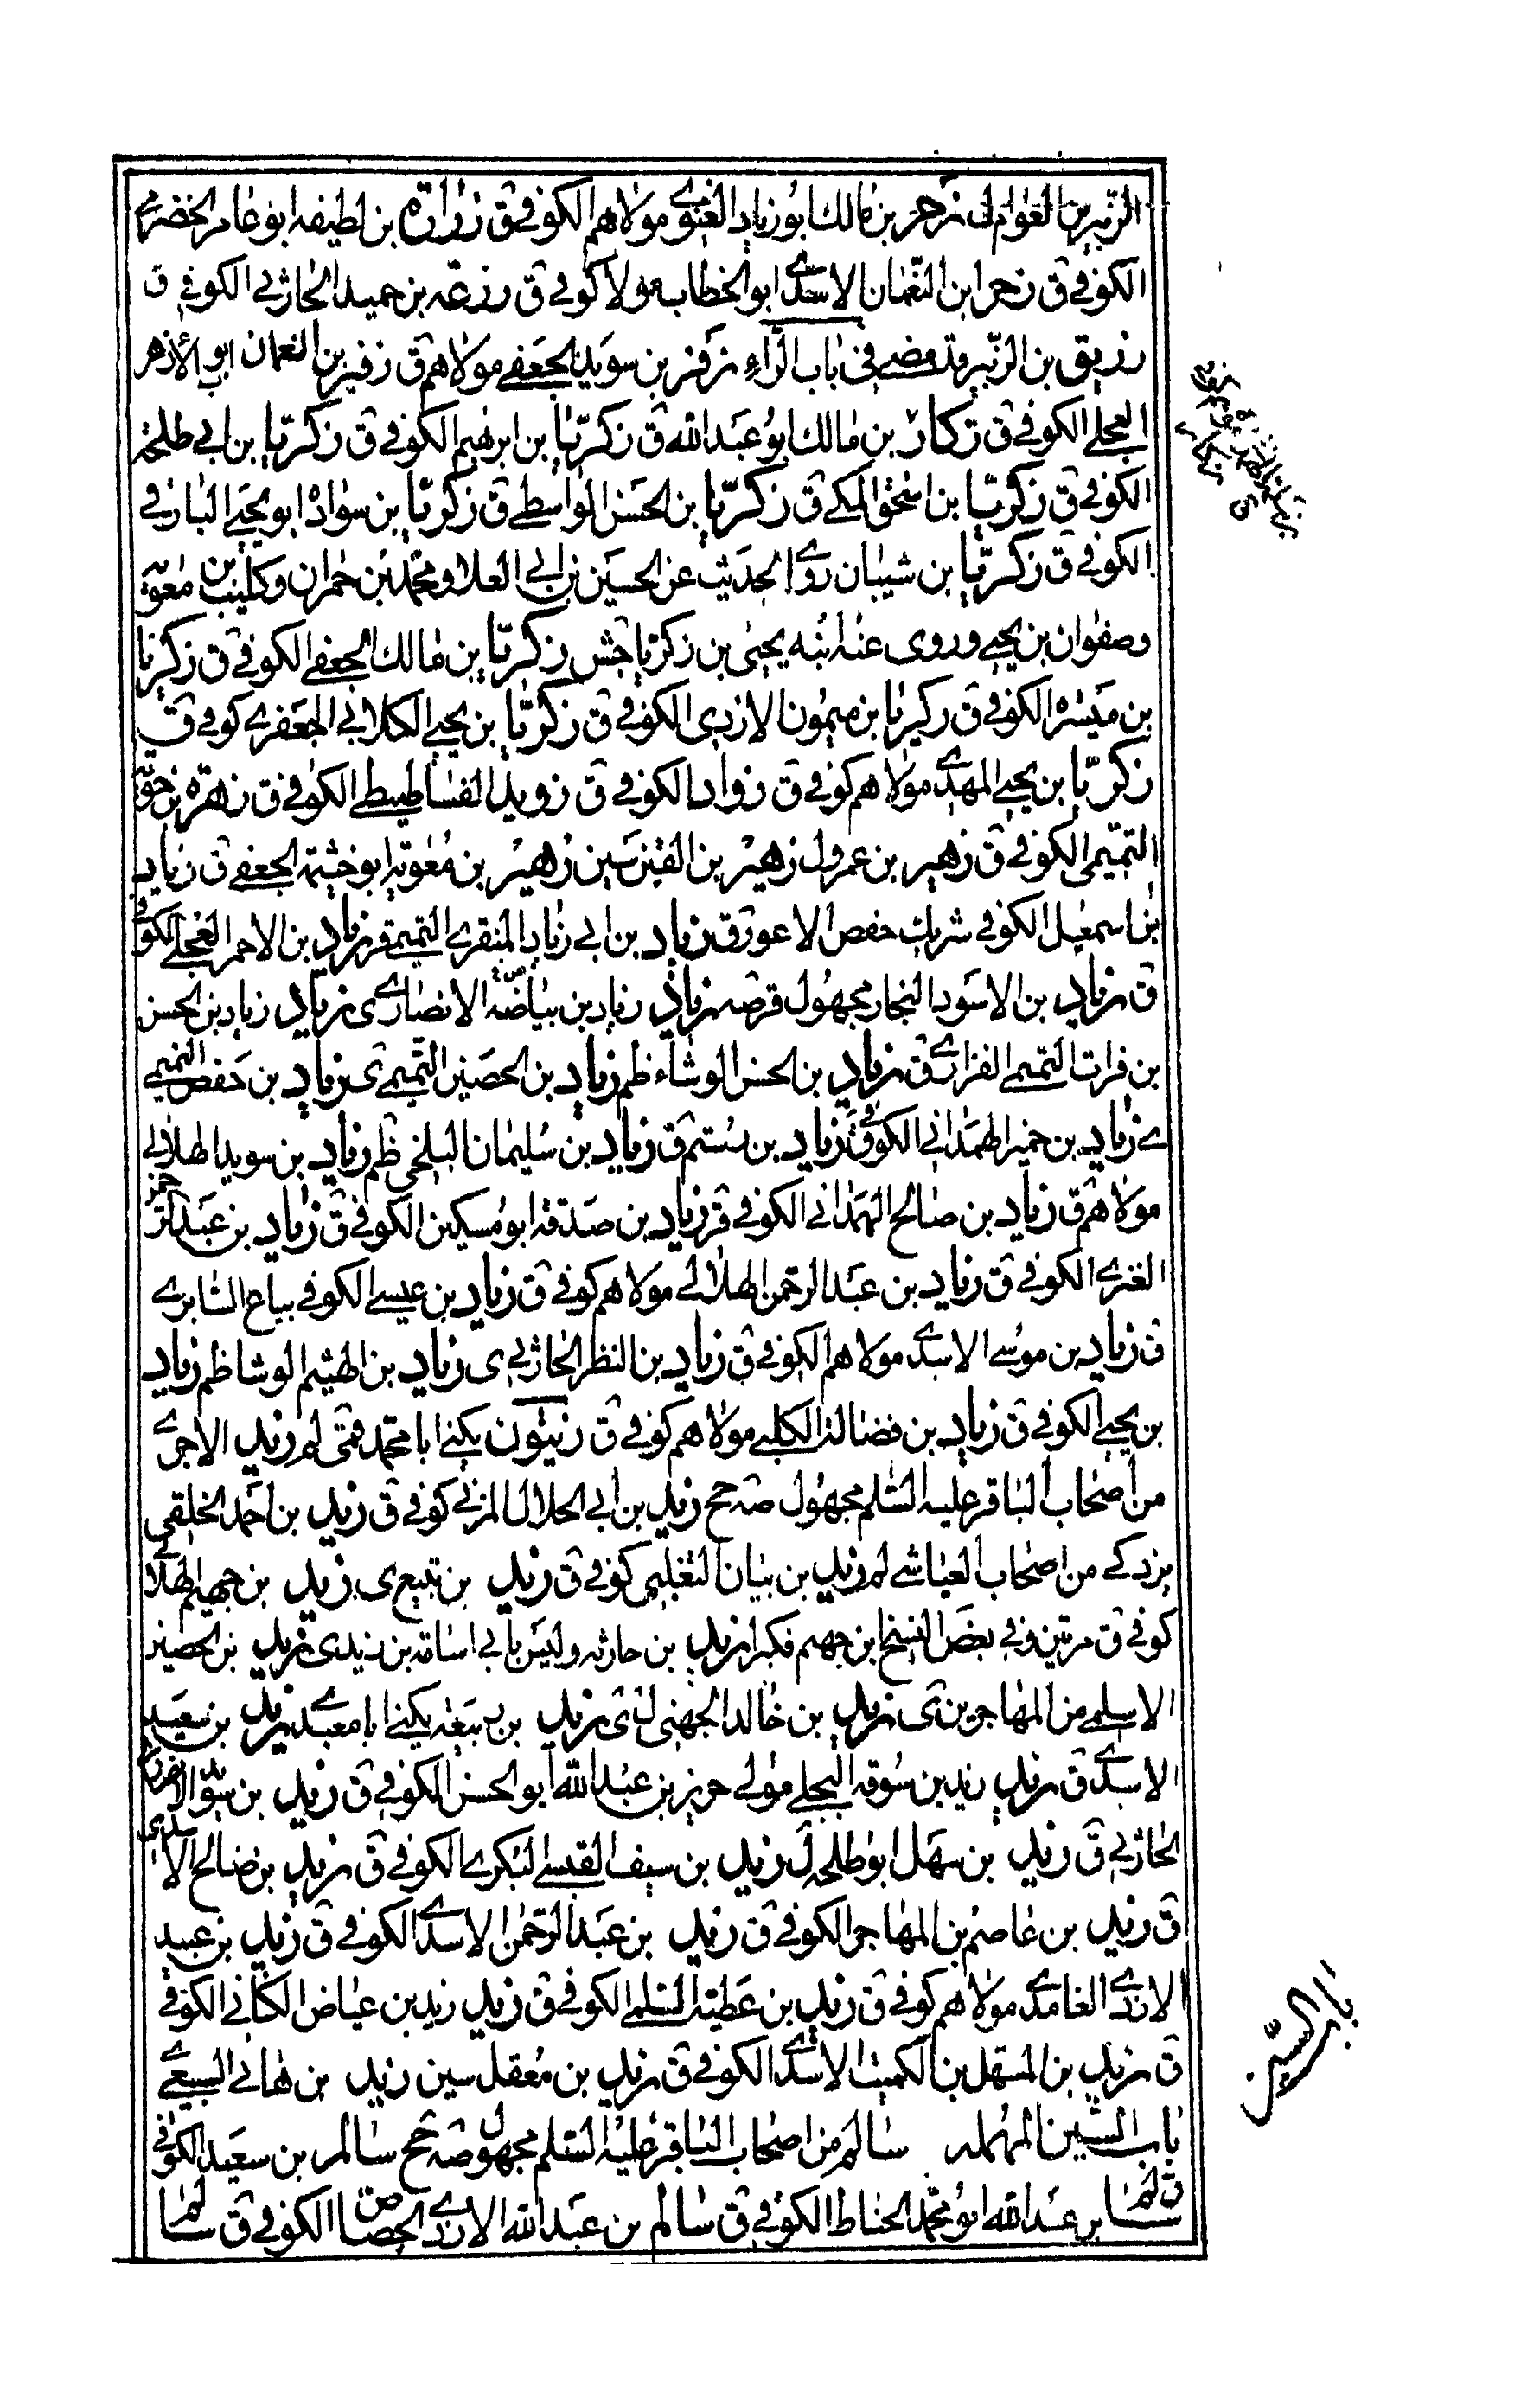 الزبير بن العوام ل زحر بن مالك ابو زياد الغنوي مولاهم الكوفي ق زرارة بن لطيفه ابو عامر الحضرمي
الكوفي ق زحر ابن النعمان الاسدي ابو الخطاب مولا كوفي ق زرعة بن حميد الحارثي الكوفي ق
زريق بن الزبير وقد مضى في باب الراء زفر بن سويد الجعفي مولاهم ق زفير بن النعمان ابو الازهر
العجلي الكوفي ق زكار بن مالك ابو عبد الله ق زكريا بن ابرهيم الكوفي ق زكريا بن ابي طلحة
الكوفي ق زكريا بن اسحق المكي ق زكريا بن الحسن الواسطي ق زكريا بن سواده ابو يحيى البارقي
الكوفي ق زكريا بن شيبان روى الحديث عن الحسين بن ابي العلا و محمد بن حمران و كليب بن معوية
وصفوان بن يحيى وروى عنه ابنه يحيى بن زكريا جش زكريا بن مالك الجعفي الكوفي ق زكريا
بن ميسره الكوفي ق زكريا بن ميمون الازدي الكوفي ق زكريا بن يحيى الكلابي الجعفري كوفي ق
زكريا بن يحيى المهدي مولاهم كوفي ق زواد الكوفي ق زويد الفساطيطي الكوفي ق زهرة بن حوية
التميمي الكوفي ق زهير بن عمرو ل زهير بن القين سين زهير بن معوية ابو خثيمة الجعفي ق زياد
بن اسمعيل الكوفي شريك حفص الاعور ق زياد بن ابي زياد المنقري التميمي قر زياد بن الاحمر العجلي الكوفي
ق زياد بن الاسود النجار مجهول قر صه زياد زياد بن بياضة الانصاري ى زياد زياد بن الحسن
بن فرات التميمي الفزاري ق زياد بن الحسن الوشاء ظم زياد بن الحصين التميمي ى زياد بن حفص التميمي
ى زياد بن خمير الهمداني الكوفي ق زياد بن رستم ق زياد بن سليمان البلخي ظم زياد بن سويد الهلالي
مولاهم ق زياد بن صالح الهمداني الكوفي قر زياد بن صدقة ابو مسكين الكوفي ق زياد بن عبد الرحمن
الغزي الكوفي ق زياد بن عبد الرحمن الهلالي مولاهم كوفي ق زياد بن عيسى الكوفي بياع السابري
ق زياد بن موسى الاسدي مولاهم الكوفي ق زياد بن النظر الحارثي ى زياد بن الهيثم الوشا ظم زياد
بن يحيى الكوفي ق زياد بن فضالة الكلبي مولاهم كوفي ق زيتون يكنى ابا محمد قمى لم زيد الاجري
من اصحاب الباقر عليه السلم مجهول صه جح زيد بن ابي الحلال المزني كوفي ق زيد بن احمد الخلقي
يزدكي من اصحاب العياشي لم زيد بن بيان التغلبي كوفي ق زيد بن تبيع ى زيد بن جهيم الهلالي
كوفي ق مرتين وفي بعض النسخ ابن جهم فكبرا زيد بن حارثه وليس بابي اسامة بن زيد ى زيد بن الحصين
الاسلمي من المهاجرين ى زيد بن خالد الجهني ل ى زيد بن ربيعة يكنى ابا معبد زيد بن سعيد
الاسدي ق زيد زيد بن سوقه البجلي مولى حريز بن عبد الله ابو الحسن الكوفي ق زيد بن سويد الانصاري
الحارثي ق زيد بن سهل ابو طلحه ل زيد بن سيف القيسي البكري الكوفي ق زيد بن صالح الاسدي
ق زيد بن عاصم بن المهاجر الكوفي ق زيد بن عبد الرحمن الاسدي الكوفي ق زيد بن عبيد
الازدي الغامدي مولاهم كوفي ق زيد بن عطية السلمي الكوفي ق زيد زيد بن عياض الكناني الكوفي
ق زيد بن المستهل بن الكميت الاسدي الكوفي ق زيد بن معقل سين زيد بن هاني السبيعي ى
باب السين المهمله سالم من اصحاب الباقر عليه السلم مجهول صه جح سالم بن سعيد الكوفي
ق سالم بن عبد الله ابو محمد الحناط الكوفي ق سالم بن عبد الله الازدي الحصاص الكوفي ق سالم
باب السين